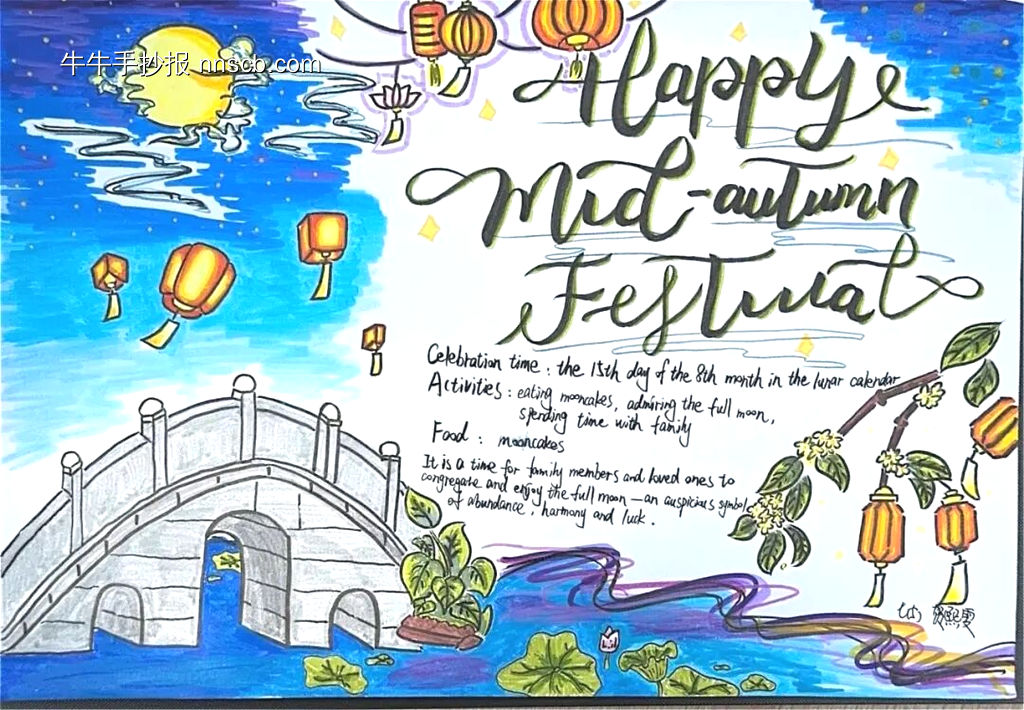 牛牛手抄报 nnscb.com
Happy
Mid-autumn
Festival
Celebration time : the 15th day of the 8th month in the lunar calendar
Activities : eating mooncakes, admiring the full moon,
spending time with family
Food : mooncakes
It is a time for family members and loved ones to
congregate and enjoy the full moon — an auspicious symbol
of abundance, harmony and luck.
熙雯